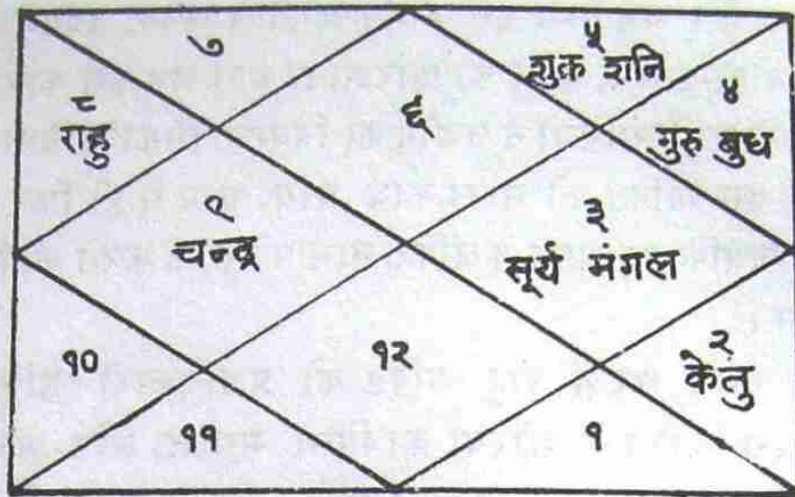 ७
५
शुक्र शनि
८
राहु
६
४
गुरु बुध
९
चन्द्र
३
सूर्य मंगल
१०
१२
२
केतु
११
१